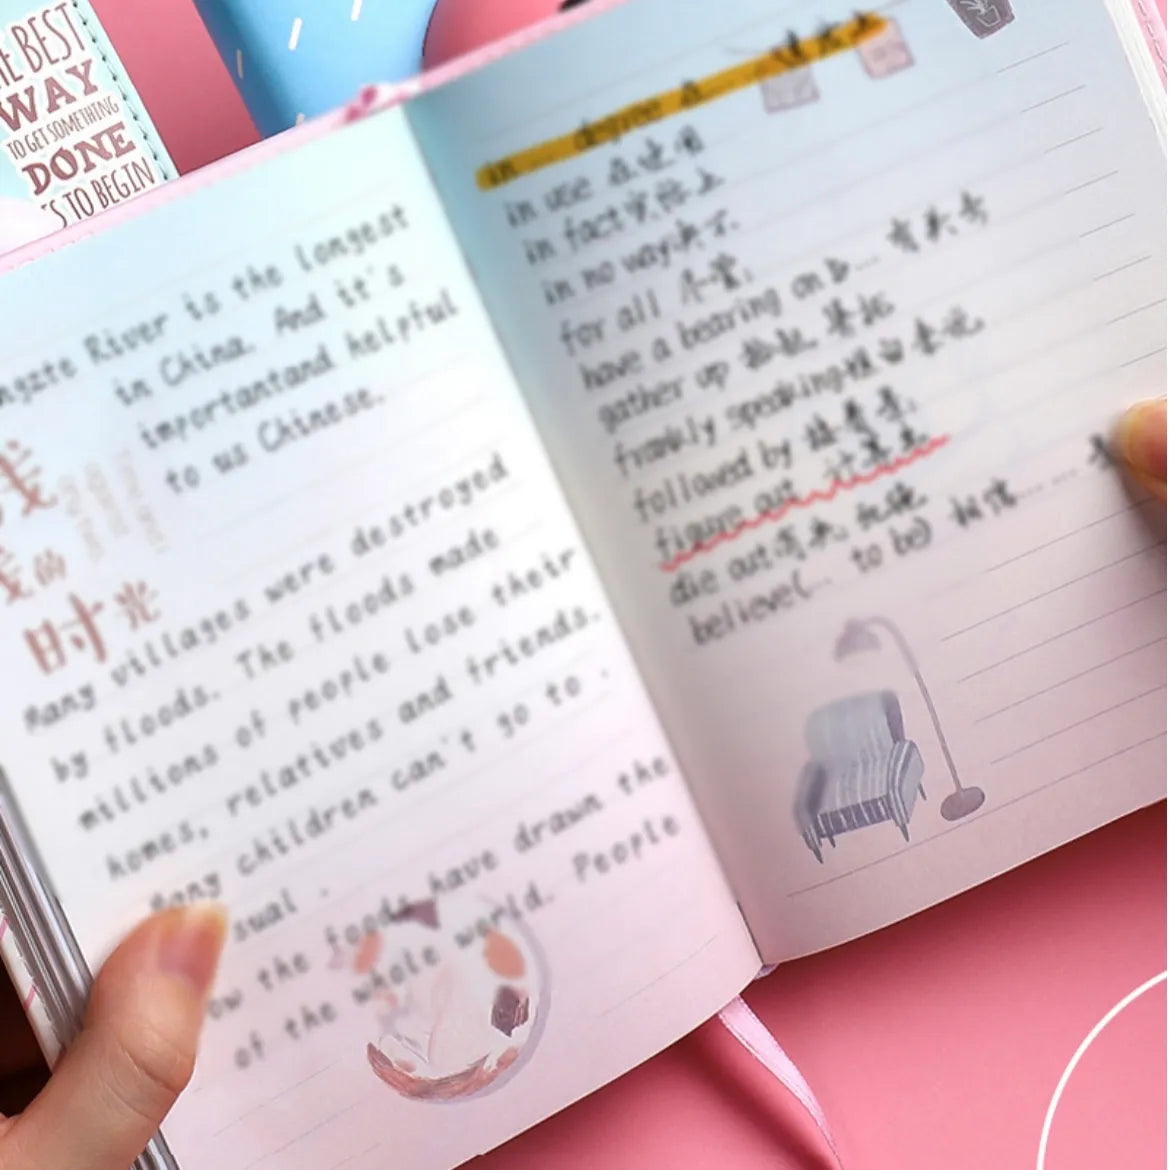 HE BEST
WAY
TO GET SOMETHING
DONE
S TO BEGIN
ngzte River is the longest
in China. And it's
importantand helpful
to us Chinese.
浅
浅的
时光
Many villages were destroyed
by floods. The floods made
millions of people lose their
homes, relatives and friends.
Many children can't go to
sual.
ow the foods have drawn the
of the whole world. People
in ... degree 在...
in use 在使用
in fact 实际上
in no way 决不
for all 尽管
have a bearing on 有关
gather up 拾起
frankly speaking 坦白来说
followed by 接着是
figure out 计算出
die out
believe(... to be) 相信...